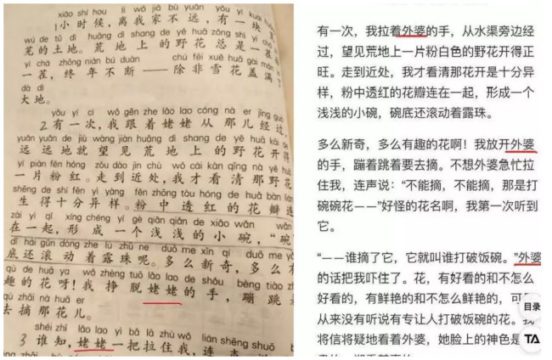 xiǎo shí hou lí wǒ jiā bù yuǎn yǒu yí kuài
1小时候,离我家不远,有一块
wú de tǔ dì huāng dì shang de yě huā zǒng shì
芜的土地。荒地上的野花总是一
yì chá zhōng nián bú duàn chú fēi xuě huā gài mǎn
一茬,终年不断——除非雪花盖满
dà dì
大地。
yǒu yí cì wǒ gēn zhe lǎo lao cóng nà er jīng guò
2有一次,我跟着姥姥从那儿经过,
yuǎn yuǎn de jiù wàng jiàn huāng dì shang de yě huā kāi
远远地就望见荒地上的野花开得
yí piàn fěn hóng zǒu dào jìn chù wǒ cái kàn qīng nà yě huā
一片粉红。走到近处,我才看清那野花
shēng de shí fēn yì yàng fěn zhōng tòu hóng de huā bàn lián
生得十分异样。粉中透红的花瓣连
zài yì qǐ xíng chéng yí gè qiǎn qiǎn de xiǎo wǎn wǎn
在一起,形成一个浅浅的小碗,“碗
dǐ hái gǔn dòng zhe lù zhū ne duō me xīn qí duō
底还滚动着露珠呢。多么新奇,多么
qù de huā ya wǒ zhèng tuō lǎo lao de shǒu bèng tiào
趣的花呀!我挣脱姥姥的手,蹦跳
qù zhāi nà huā er
去摘那花儿。
shéi zhī lǎo lao yì bǎ lā zhù wǒ lián shēng shuō
3谁知,姥姥一把拉住我,连声
有一次,我拉着外婆的手,从水渠旁边经
过,望见荒地上一片粉白色的野花开得正
旺。走到近处,我才看清那花开是十分异
样,粉中透红的花瓣连在一起,形成一个
浅浅的小碗,碗底还滚动着露珠。
多么新奇,多么有趣的花啊!我放开外婆
的手,蹦着跳着要去摘。不想外婆急忙拉
住我,连声说:“不能摘,不能摘,那是打
碗碗花——”好怪的花名啊,我第一次听到
它。
“——谁摘了它,它就叫谁打破饭碗。”外婆
的话把我吓住了。花,有好看的和不怎么
好看的,有鲜艳的和不怎么鲜艳的,可
从来没有听说有专让人打破饭碗的花。我
将信将疑地看着外婆,她脸上的神色是
目录
TA